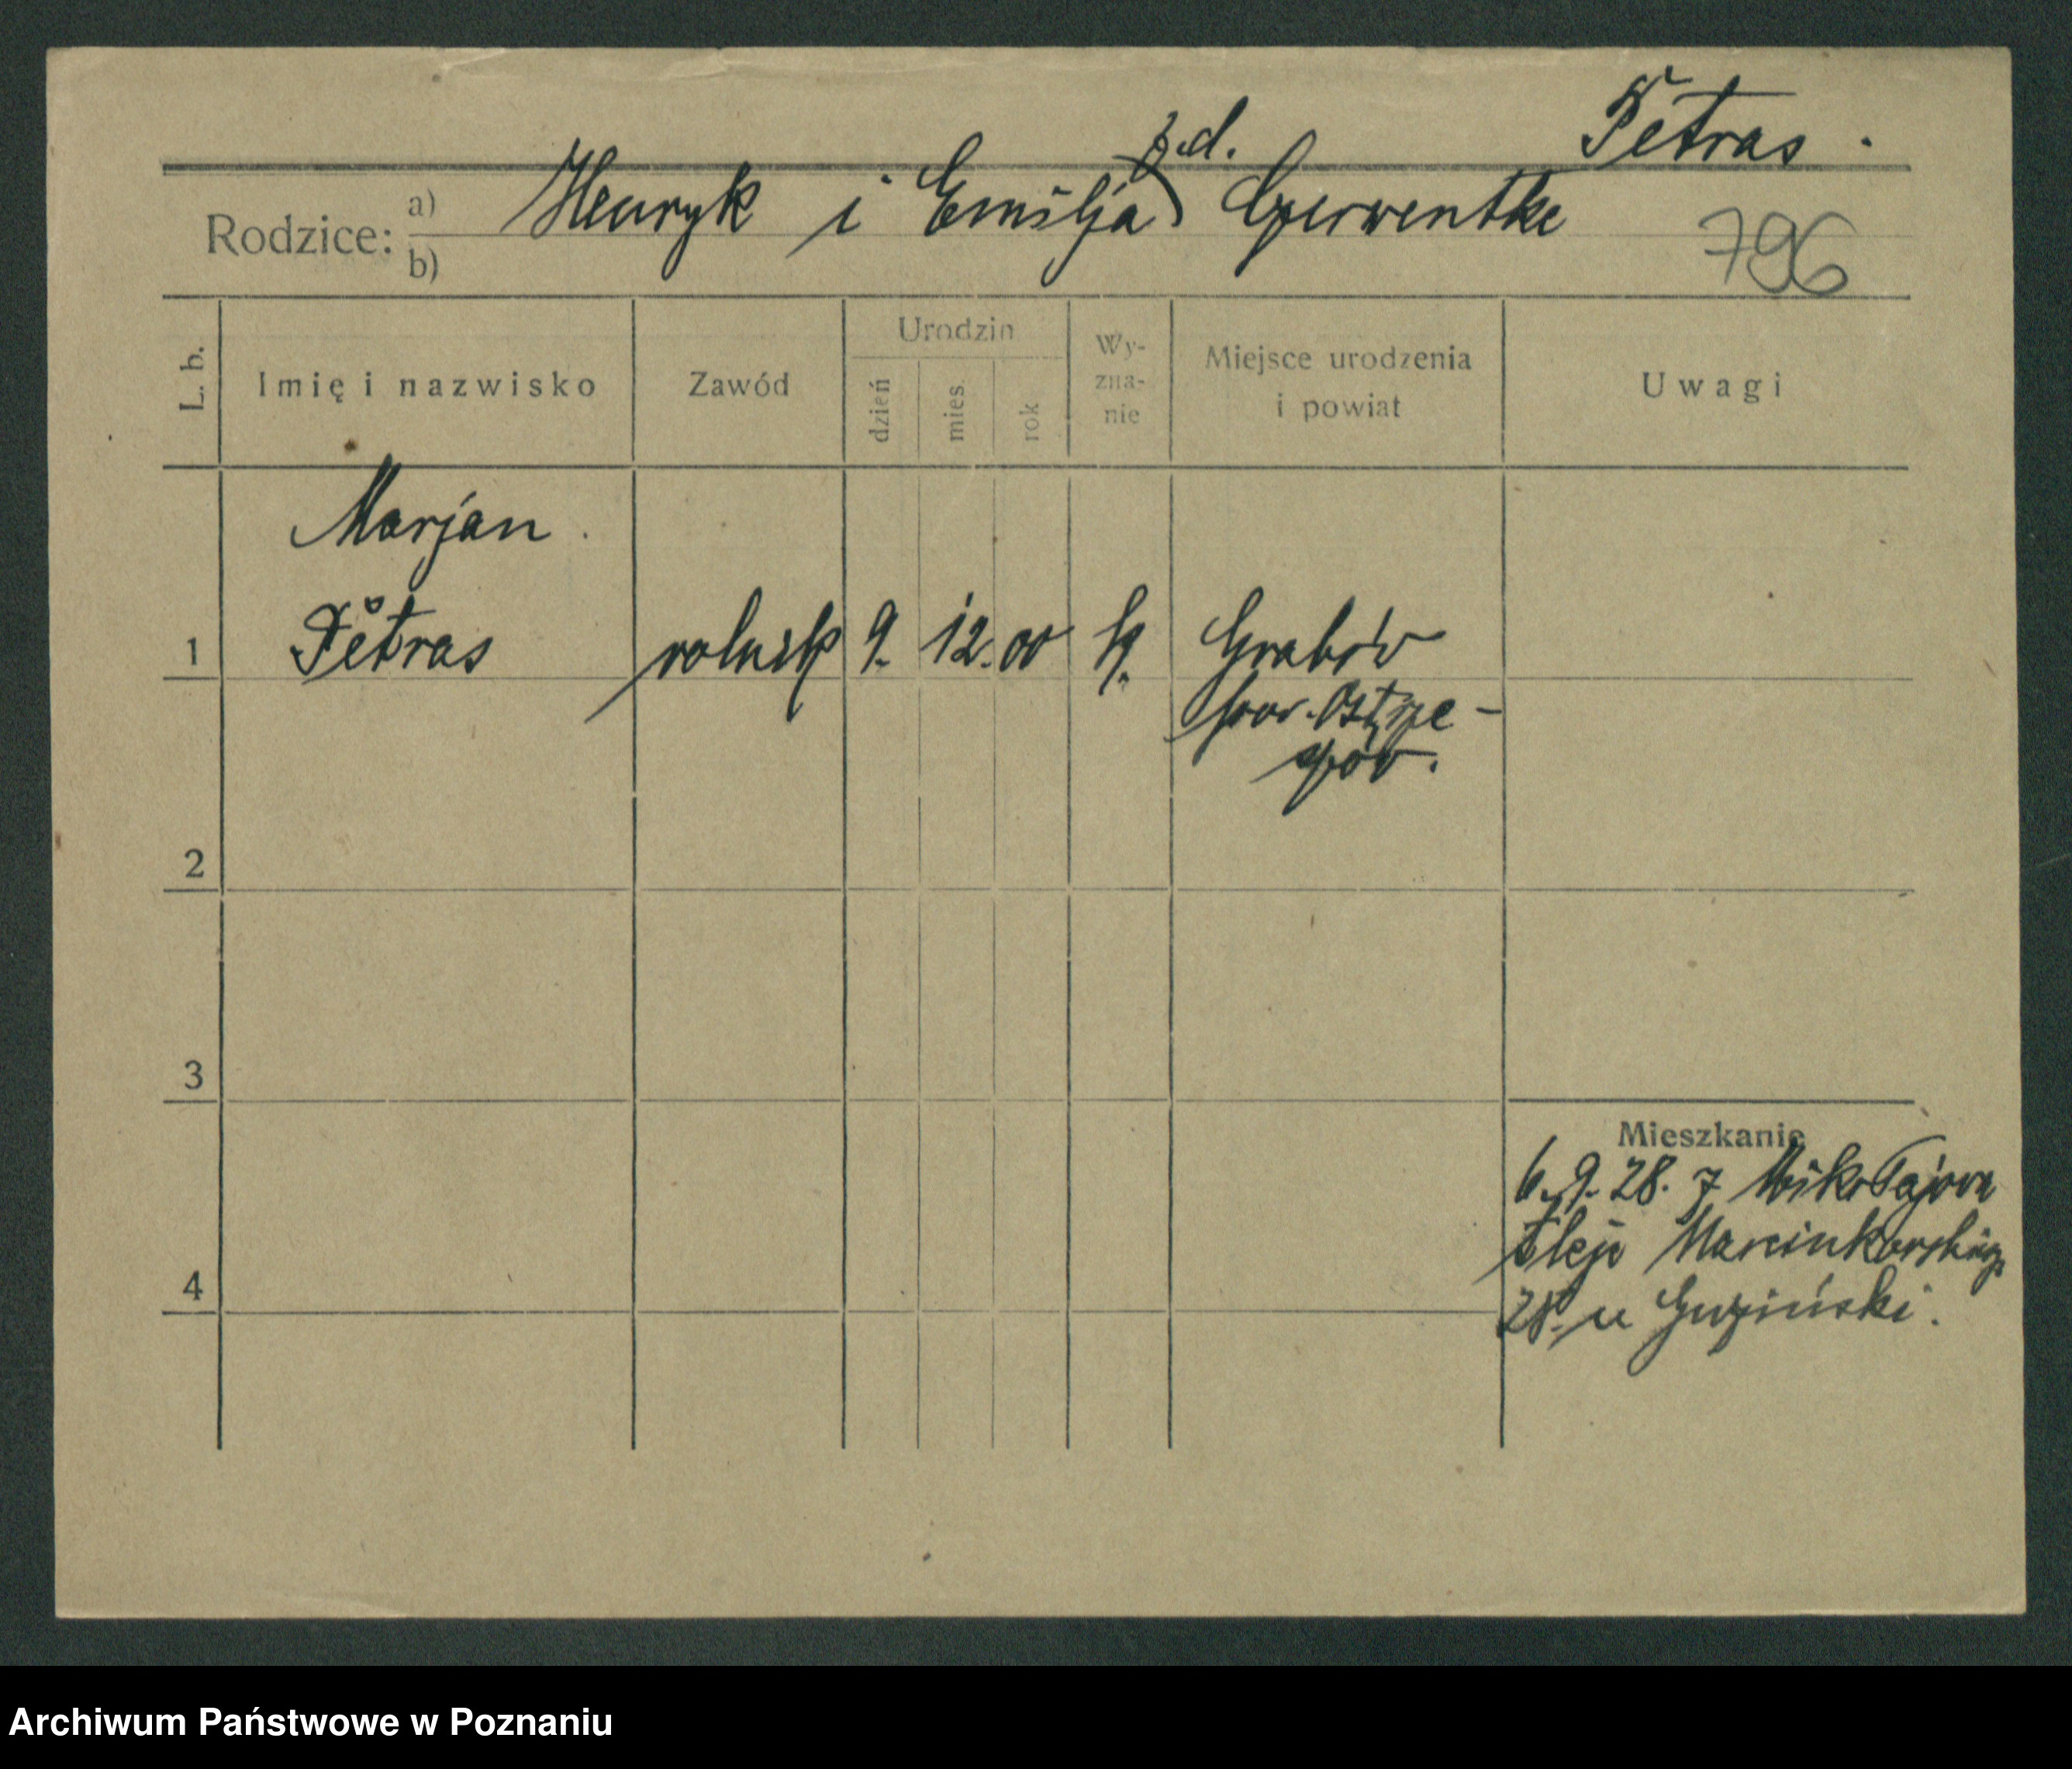 Petras.
z d.
Rodzice: a) Henryk i Emilja Czerwentke
b)
796
L. b.
Imię i nazwisko
Zawód
Urodzin
dzień
mies.
rok
Wy-
zna-
nie
Miejsce urodzenia
i powiat
Uwagi
Marjan.
1 Petras rolnik 9. 12. 00 k. Grabów
pow. Ostrze-
szów.
2
3
4
Mieszkanie
6.9.28. z
Aleje Marcinkowskiego
28. u
Archiwum Państwowe w Poznaniu